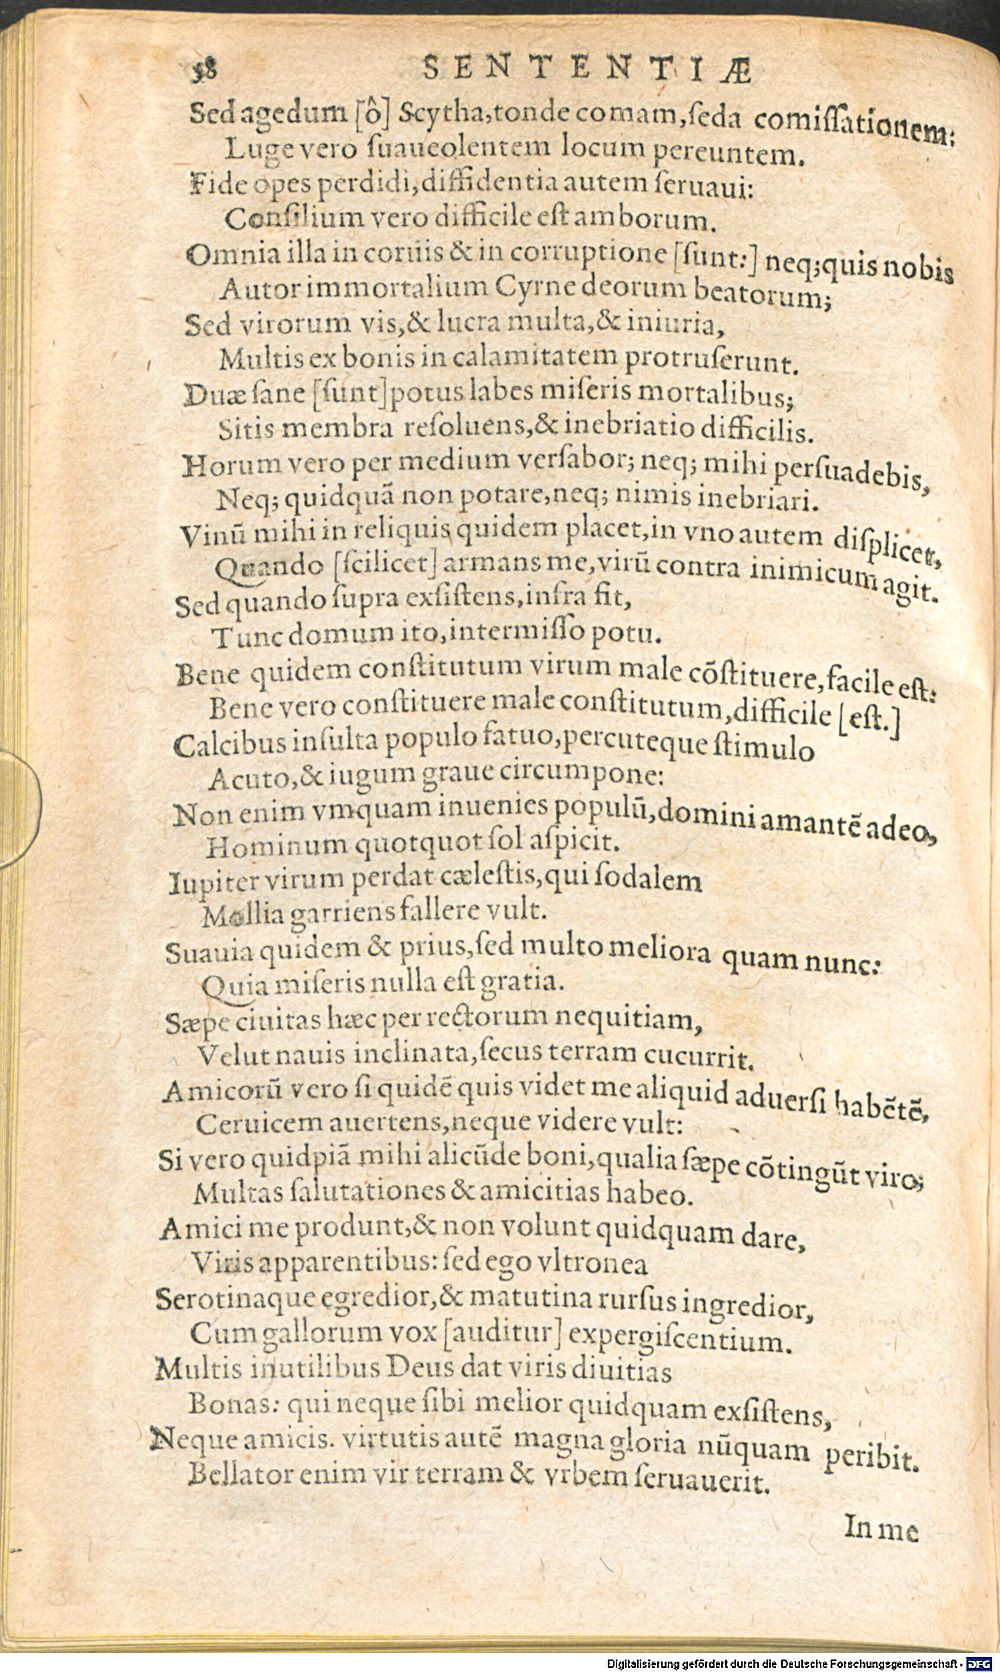 58 SENTENTIÆ
Sed agedum [ô] Scytha, tonde comam, ſeda comiſſationem:
Luge vero ſuaueolentem locum pereuntem.
Fide opes perdidi, diffidentia autem ſeruaui:
Conſilium vero difficile eſt amborum.
Omnia illa in coruis & in corruptione [ſunt:] neq; quis nobis
Autor immortalium Cyrne deorum beatorum;
Sed virorum vis, & lucra multa, & iniuria,
Multis ex bonis in calamitatem protruſerunt.
Duæ ſane [ſunt] potus labes miſeris mortalibus;
Sitis membra reſoluens, & inebriatio difficilis.
Horum vero per medium verſabor; neq; mihi perſuadebis,
Neq; quidquã non potare, neq; nimis inebriari.
Vinũ mihi in reliquis quidem placet, in vno autem diſplicet,
Quando [ſcilicet] armans me, virũ contra inimicum agit.
Sed quando ſupra exſiſtens, infra fit,
Tunc domum ito, intermiſſo potu.
Bene quidem conſtitutum virum male cõſtituere, facile eſt:
Bene vero conſtituere male conſtitutum, difficile [eſt.]
Calcibus inſulta populo fatuo, percuteque ſtimulo
Acuto, & iugum graue circumpone:
Non enim vmquam inuenies populũ, domini amantẽ adeo,
Hominum quotquot ſol aſpicit.
Iupiter virum perdat cæleſtis, qui ſodalem
Mollia garriens fallere vult.
Suauia quidem & prius, ſed multo meliora quam nunc:
Quia miſeris nulla eſt gratia.
Sæpe ciuitas hæc per rectorum nequitiam,
Velut nauis inclinata, ſecus terram cucurrit.
Amicorũ vero ſi quidẽ quis videt me aliquid aduerſi habẽtẽ,
Ceruicem auertens, neque videre vult:
Si vero quidpiã mihi alicũde boni, qualia ſæpe cõtingũt viro;
Multas ſalutationes & amicitias habeo.
Amici me produnt, & non volunt quidquam dare,
Viris apparentibus: ſed ego vltronea
Serotinaque egredior, & matutina rurſus ingredior,
Cum gallorum vox [auditur] expergiſcentium.
Multis inutilibus Deus dat viris diuitias
Bonas: qui neque ſibi melior quidquam exſiſtens,
Neque amicis. virtutis autẽ magna gloria nũquam peribit.
Bellator enim vir terram & vrbem ſeruauerit.
In me
Digitalisierung gefördert durch die Deutsche Forschungsgemeinschaft - DFG